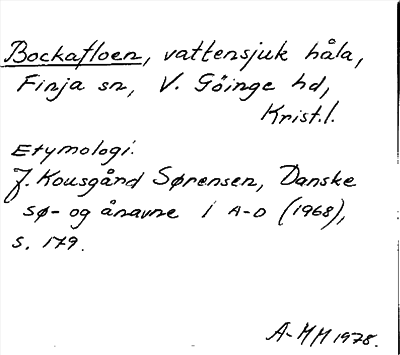 Bockafloen, vattensjuk håla,
Finja sn, V. Göinge hd,
Krist.l.
Etymologi.
J. Kousgård Sørensen, Danske
sø- og ånavne 1 A-D (1968),
s. 179.
A-MM 1978.